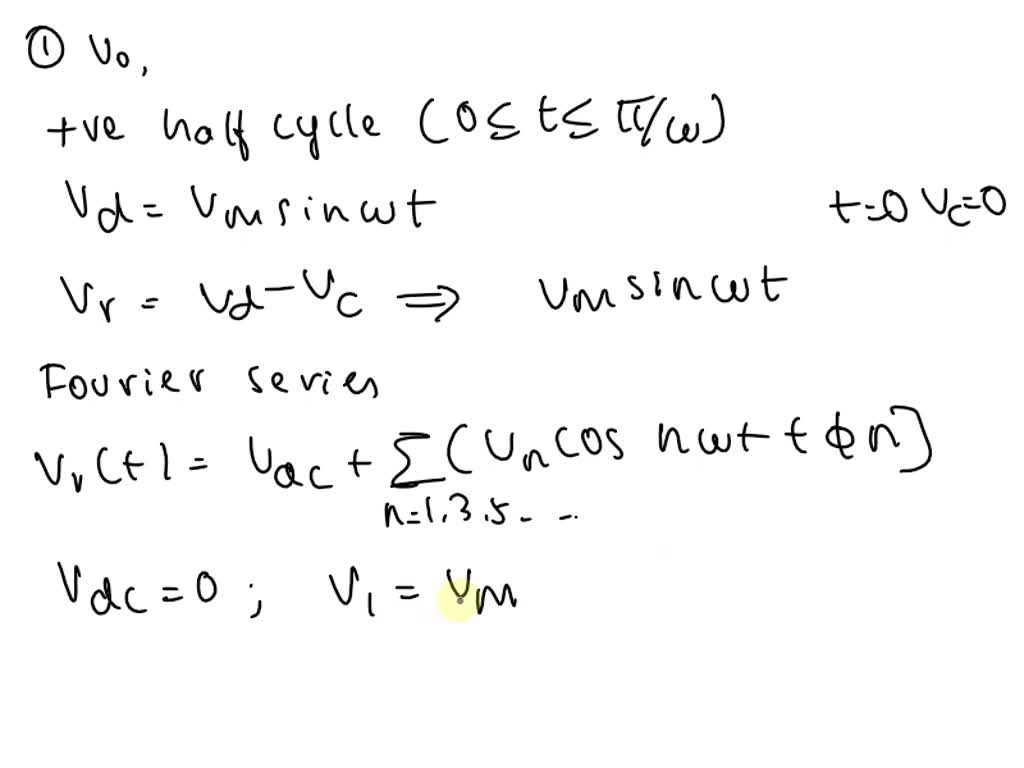 ① V₀,
+ve half cycle (0≤ t≤ π/ω)
Vd = Vm sinωt t=0 Vc=0
Vr = Vd - Vc ⇒ Vm sin ωt
Fourier series
Vr(t) = Vac + Σ (Vn cos nωt + φn)
n=1,3,5- -.
Vdc = 0 ; V₁ = Vm